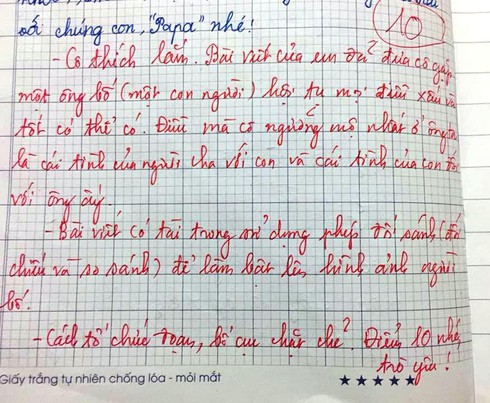 với chúng con, "Papa" nhé!
10
- Cô thích lắm. Bài viết của em đã đưa cô gặp
một ông bố (một con người) hội tụ mọi điều xấu và
tốt có thể có. Điều mà cô ngưỡng mộ nhất ở ông ta
là cái tình của người cha với con và cái tình của con đối
với ông ấy.
- Bài viết có tài trong sử dụng phép so sánh (đối
chiếu và so sánh) để làm bật lên hình ảnh người
bố.
- Cách tổ chức đoạn, bố cục chặt chẽ. Điểm 10 nhé,
trò yêu!
Giấy trắng tự nhiên chống lóa - mỏi mắt